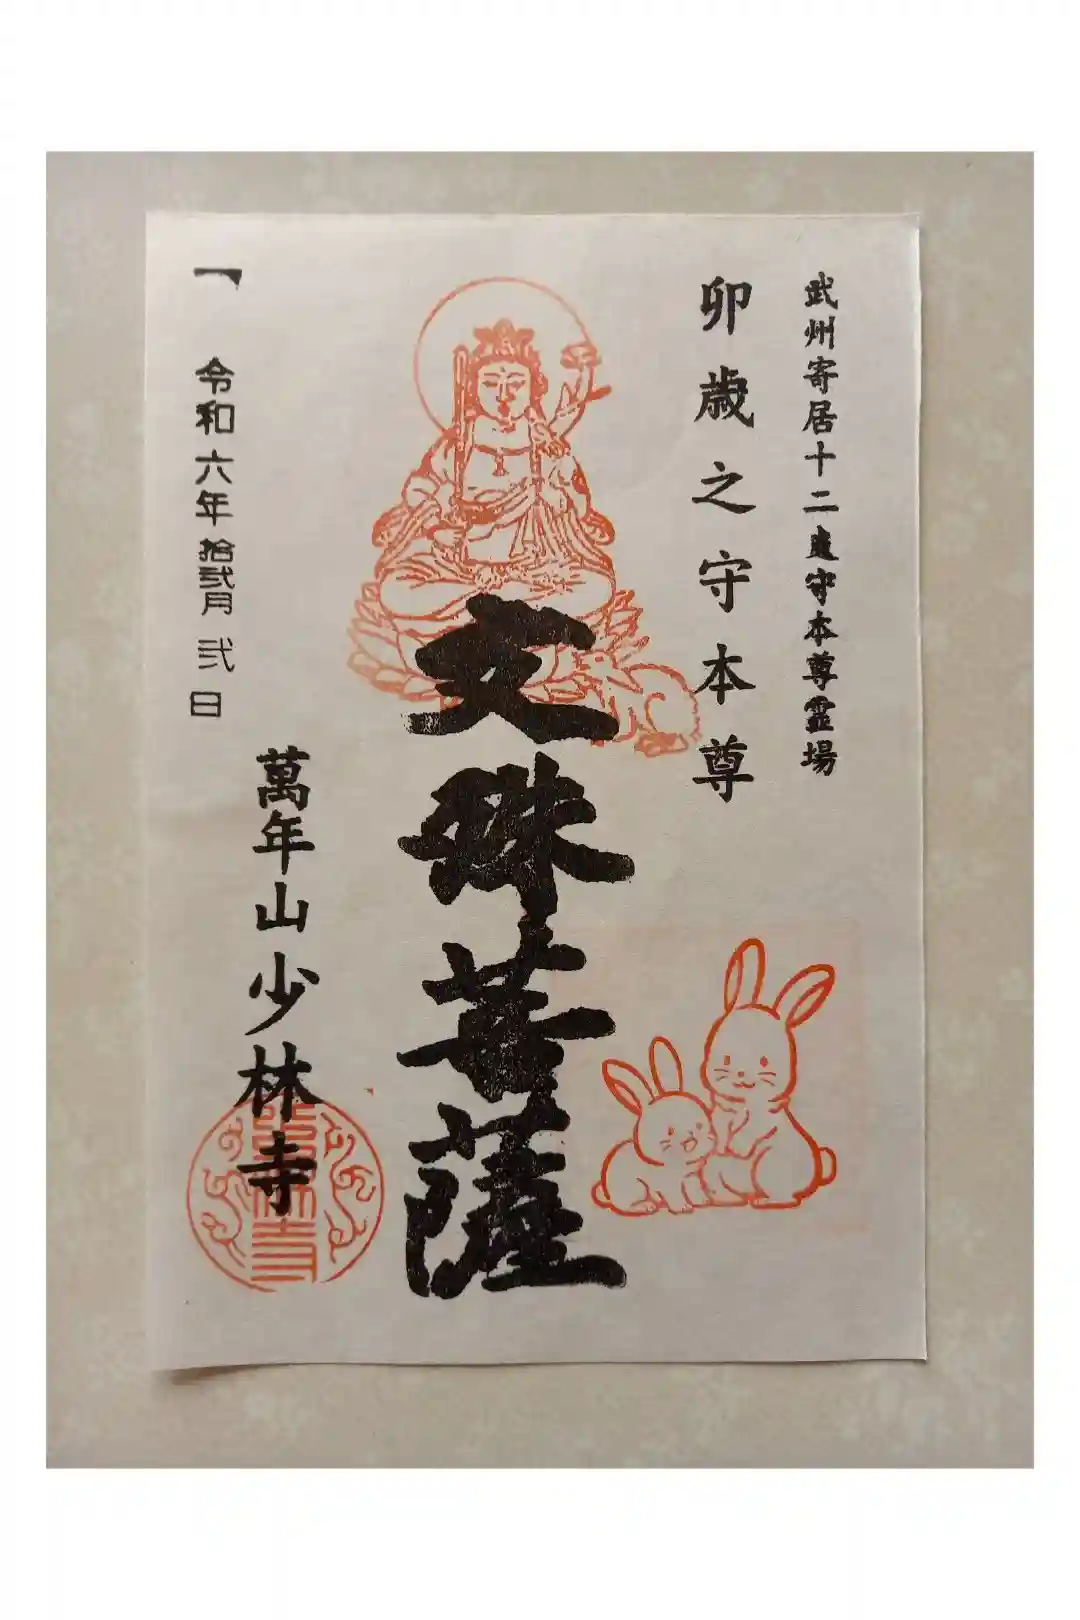 武州寄居十二支守本尊霊場
卯歳之守本尊
文殊菩薩
萬年山少林寺
令和六年拾弐月弐日